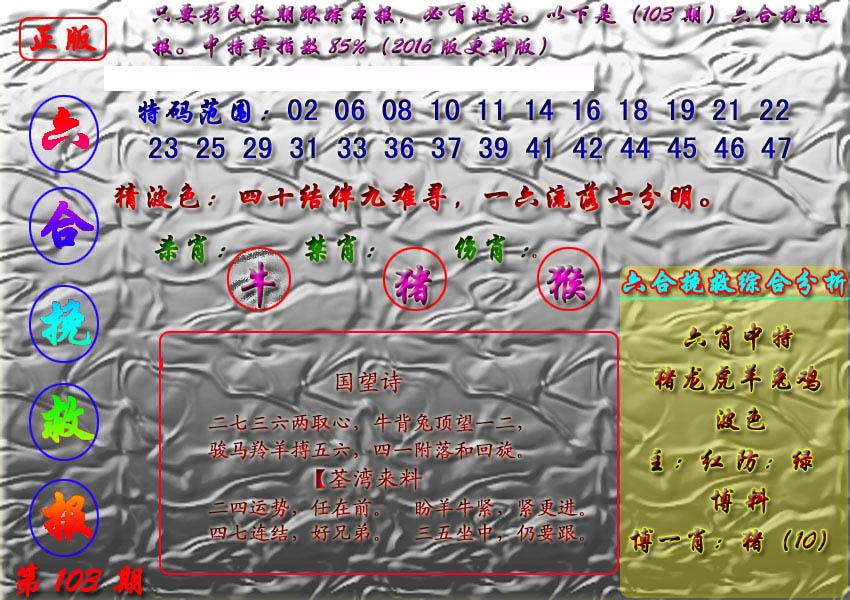 正版
只要彩民长期跟踪本报，必有收获。以下是（103 期）六合挽救
报。中特率指数 85%（2016 版更新版）
六合挽救报
特码范围：02 06 08 10 11 14 16 18 19 21 22
23 25 29 31 33 36 37 39 41 42 44 45 46 47
猜波色：四十结伴九难寻，一六流落七分明。
杀肖：牛 禁肖：猪 伤肖：。猴
国望诗
二七三六两取心，牛背兔顶望一二，
骏马羚羊搏五六，四一附落和回旋。
【荃湾来料
二四运势，任在前。 盼羊牛紧，紧更进。
四七连结，好兄弟。 三五坐中，仍要跟。
六合挽救综合分析
六肖中特
猪龙虎羊兔鸡
波色
主：红防：绿
博料
博一肖：猪（10）
第 103 期